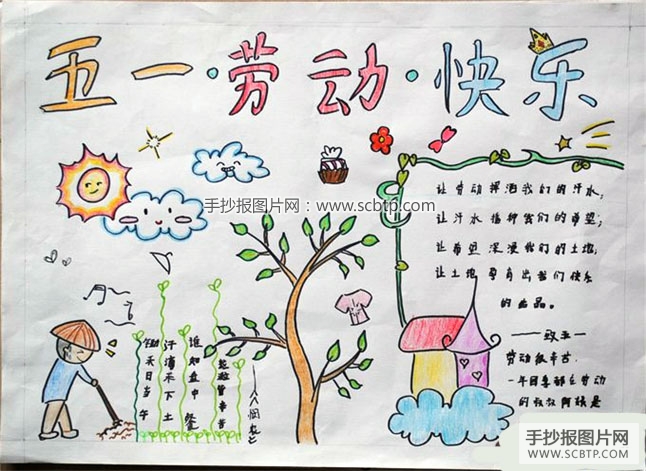 五一·劳动·快乐
手抄报图片网：www.scbtp.com
让劳动挥洒我们的汗水,
让汗水播种我们的希望;
让希望深浸我们的土地,
让土地孕育出我们快乐
的
品。
——致五一
劳动很辛苦.
一年四季都在劳动
的叔叔阿姨是
锄禾日当午
汗滴禾下土
谁知盘中餐
粒粒皆辛苦
——《悯农》
手抄报图片网
WWW.SCBTP.COM